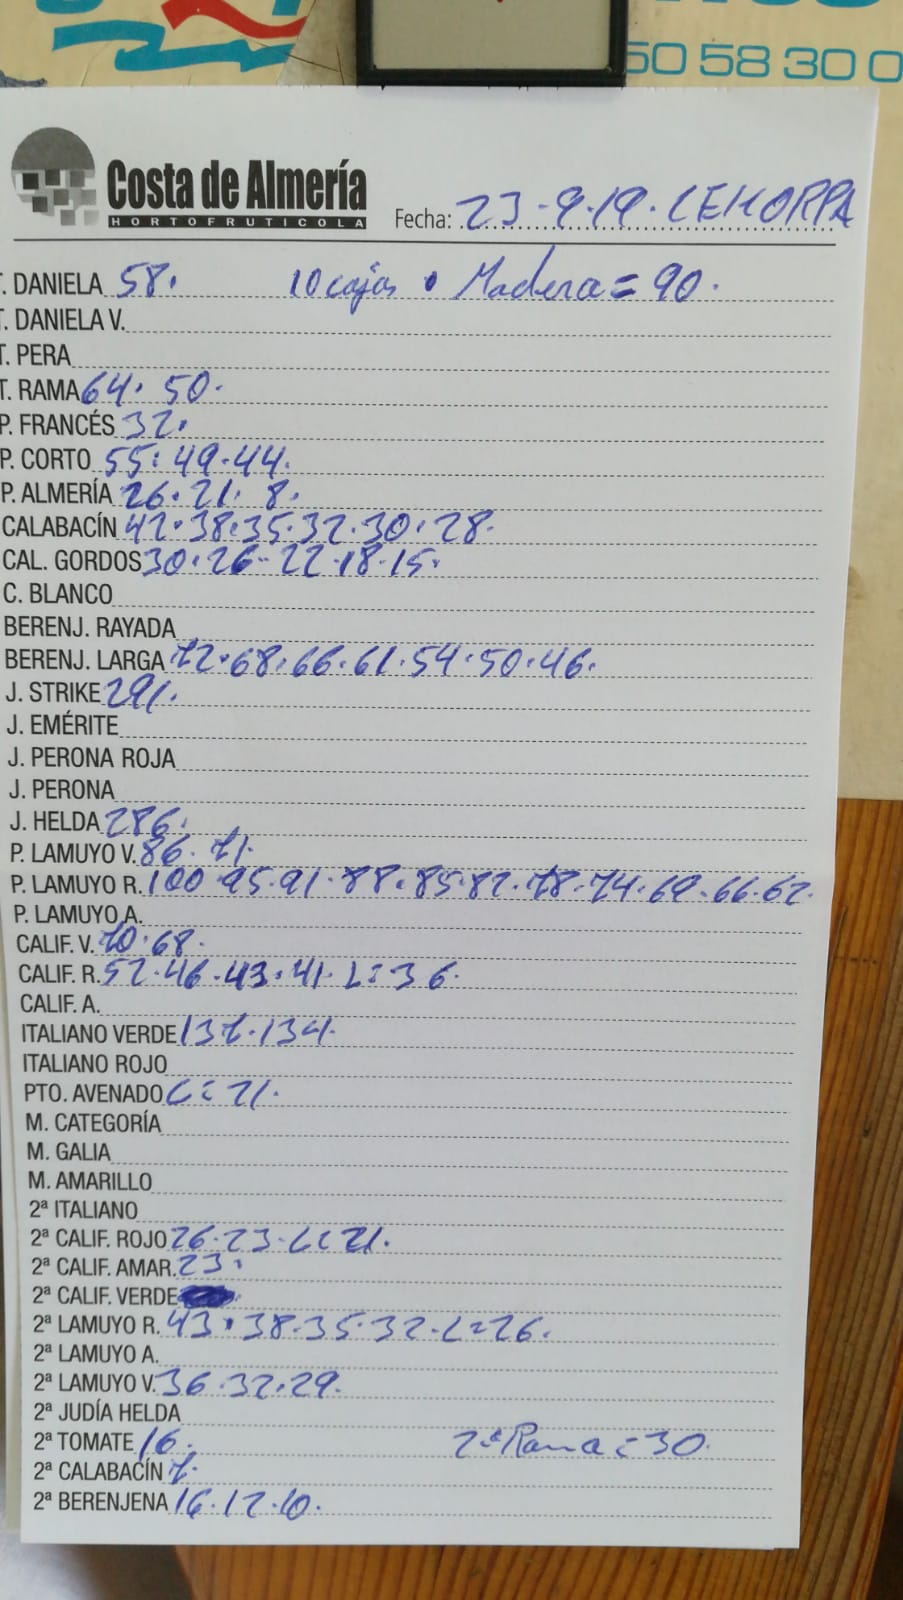 50 58 30 0
Costa de Almería
HORTOFRUTICOLA
Fecha: 23-9-19. CEHORPA
T. DANIELA 58. 10 cajas • Madera = 90.
T. DANIELA V.
T. PERA
T. RAMA 64. 50.
P. FRANCÉS 32.
P. CORTO 55. 49. 44.
P. ALMERÍA 26. 21. 8.
CALABACÍN 42. 38. 35. 32. 30. 28.
CAL. GORDOS 30. 26. 22. 18. 15.
C. BLANCO
BERENJ. RAYADA
BERENJ. LARGA 72. 68. 66. 61. 54. 50. 46.
J. STRIKE 291.
J. EMÉRITE
J. PERONA ROJA
J. PERONA
J. HELDA 286.
P. LAMUYO V. 86. 71.
P. LAMUYO R. 100. 95. 91. 88. 85. 82. 78. 74. 69. 66. 62.
P. LAMUYO A.
CALIF. V. 70. 68.
CALIF. R. 52. 46. 43. 41. L = 36.
CALIF. A.
ITALIANO VERDE 137. 134.
ITALIANO ROJO
PTO. AVENADO C = 21.
M. CATEGORÍA
M. GALIA
M. AMARILLO
2ª ITALIANO
2ª CALIF. ROJO 26. 23. L = 21.
2ª CALIF. AMAR. 23.
2ª CALIF. VERDE
2ª LAMUYO R. 43. 38. 35. 32. L = 26.
2ª LAMUYO A.
2ª LAMUYO V. 36. 32. 29.
2ª JUDÍA HELDA
2ª TOMATE 16. 2ª Rama = 30.
2ª CALABACÍN 7.
2ª BERENJENA 16. 12. 10.